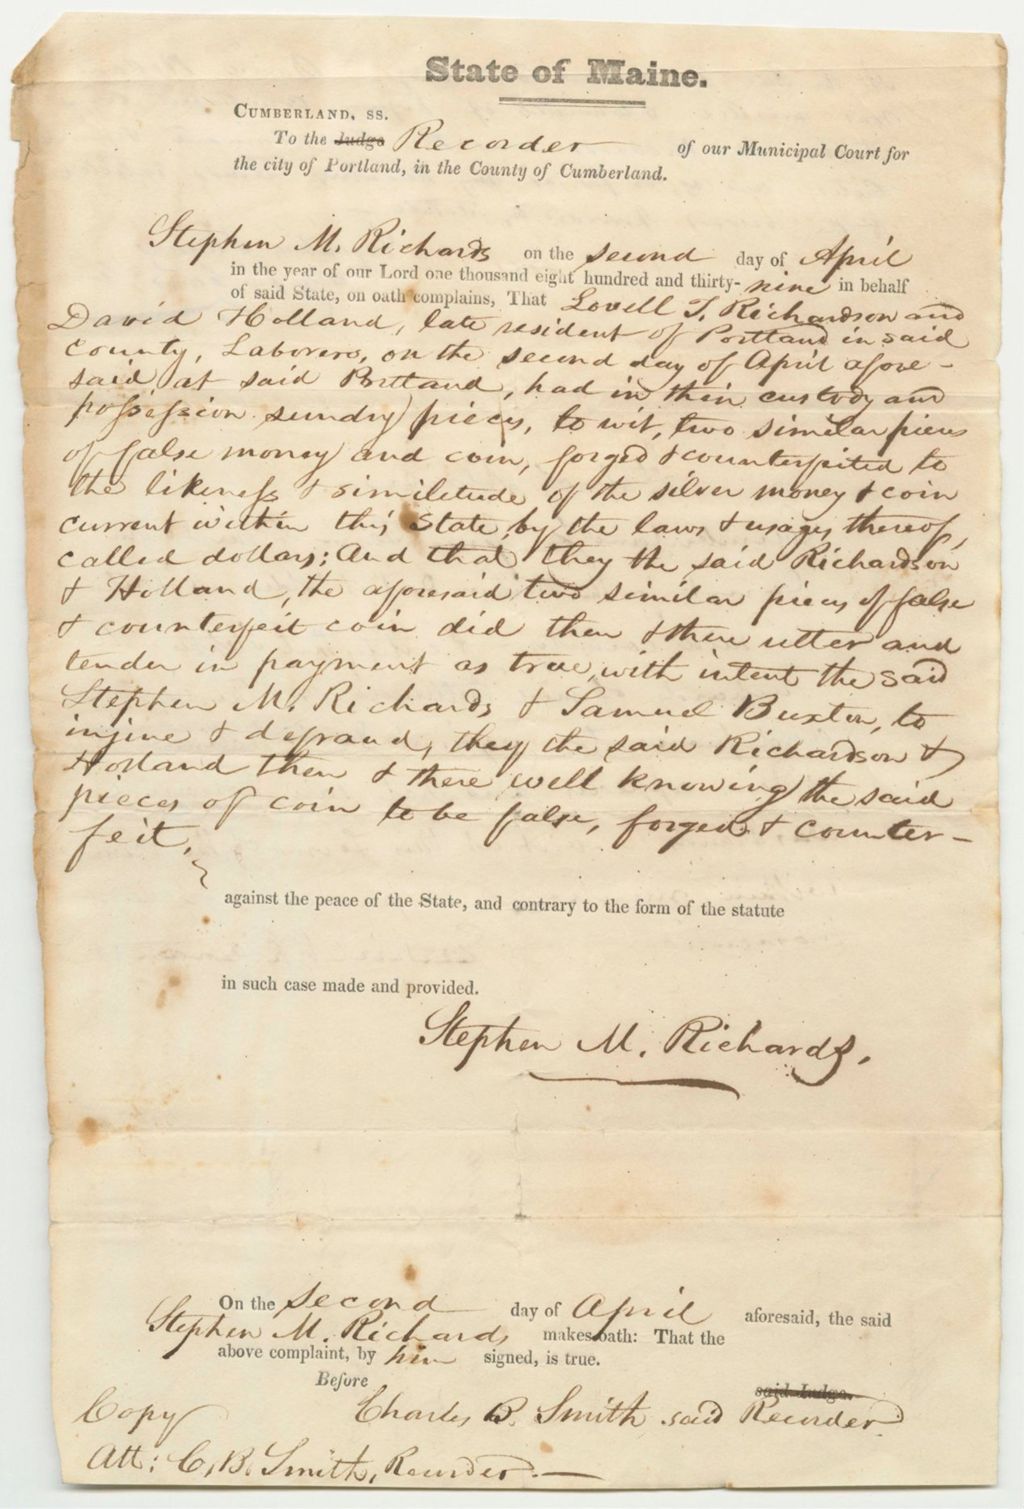 State of Maine.
CUMBERLAND, SS.
To the Judge Recorder of our Municipal Court for
the city of Portland, in the County of Cumberland.
Stephen M. Richards on the second day of April
in the year of our Lord one thousand eight hundred and thirty-nine in behalf
of said State, on oath complains, That Lovell T. Richardson and
David Holland, late resident of Portland in said
County, Laborers, on the second day of April afore-
said at said Portland, had in their custody and
possession sundry pieces, to wit, two similar pieces
of false money and coin, forged & counterfeited to
the likeness & similitude of the silver money & coin
current within this State, by the laws & usages thereof,
called dollars; And that they the said Richardson
& Holland, the aforesaid two similar pieces of false
& counterfeit coin did then & there utter and
tender in payment as true, with intent the said
Stephen M. Richards & Samuel Buxton, to
injure & defraud, they the said Richardson &
Holland then & there well knowing the said
pieces of coin to be false, forged & counter-
feit,
against the peace of the State, and contrary to the form of the statute
in such case made and provided.
Stephen M. Richards.
On the second day of April aforesaid, the said
Stephen M. Richards makes oath: That the
above complaint, by him signed, is true.
Before
said Judge.
Charles B. Smith said Recorder
Copy
Att: C. B. Smith, Recorder.